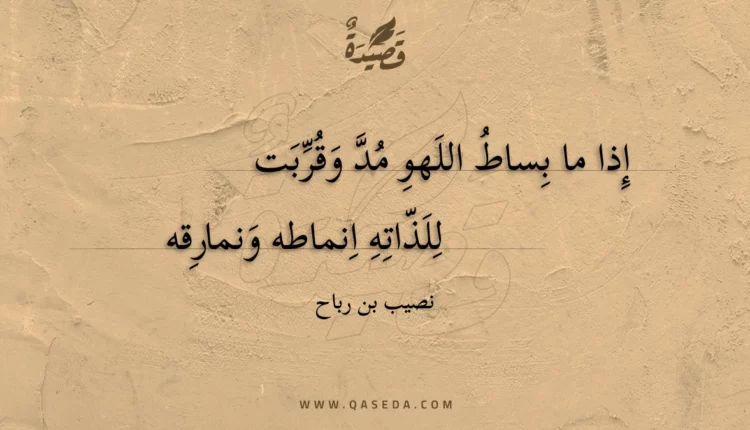 قَصِيْدَةٌ
إِذا ما بِساطُ اللَهوِ مُدَّ وَقُرِّبَت
لِلَذّاتِهِ اِنماطه وَنمارِقِه
نصيب بن رباح
WWW.QASEDA.COM